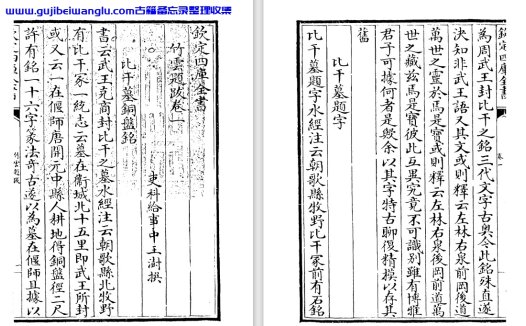 www.gujibeiwanglu.com古籍备忘录整理收集
欽定四庫全書
竹雲題跋卷一
吏科給事中王澍撰
比干墓銅盤銘
書云武王克商封比干之墓水經注云朝歌縣北牧野
有比干冢一統志云墓在衛城北十五里即武王所封
或又云一在偃師唐開元中縣人耕地得銅盤徑二尺
許有銘一十六字篆法奇古遂以為墓在偃師且據以
竹雲題跋
欽定四庫全書
卷一
為周武王封比干之銘三代文字古奥今此銘殊直遂
決知非武王語又其文或則釋云左林右泉前岡後道
萬世之靈於焉是寶或則釋云左林右泉後岡前道萬
世之藏兹焉是寶彼此互異究竟不可識别雖有博雅
君子可據何者是歟余以其字特古聊復精摸以存其
舊
比干墓題字
比干墓題字水經注云朝歌縣牧野比干冢前有石銘